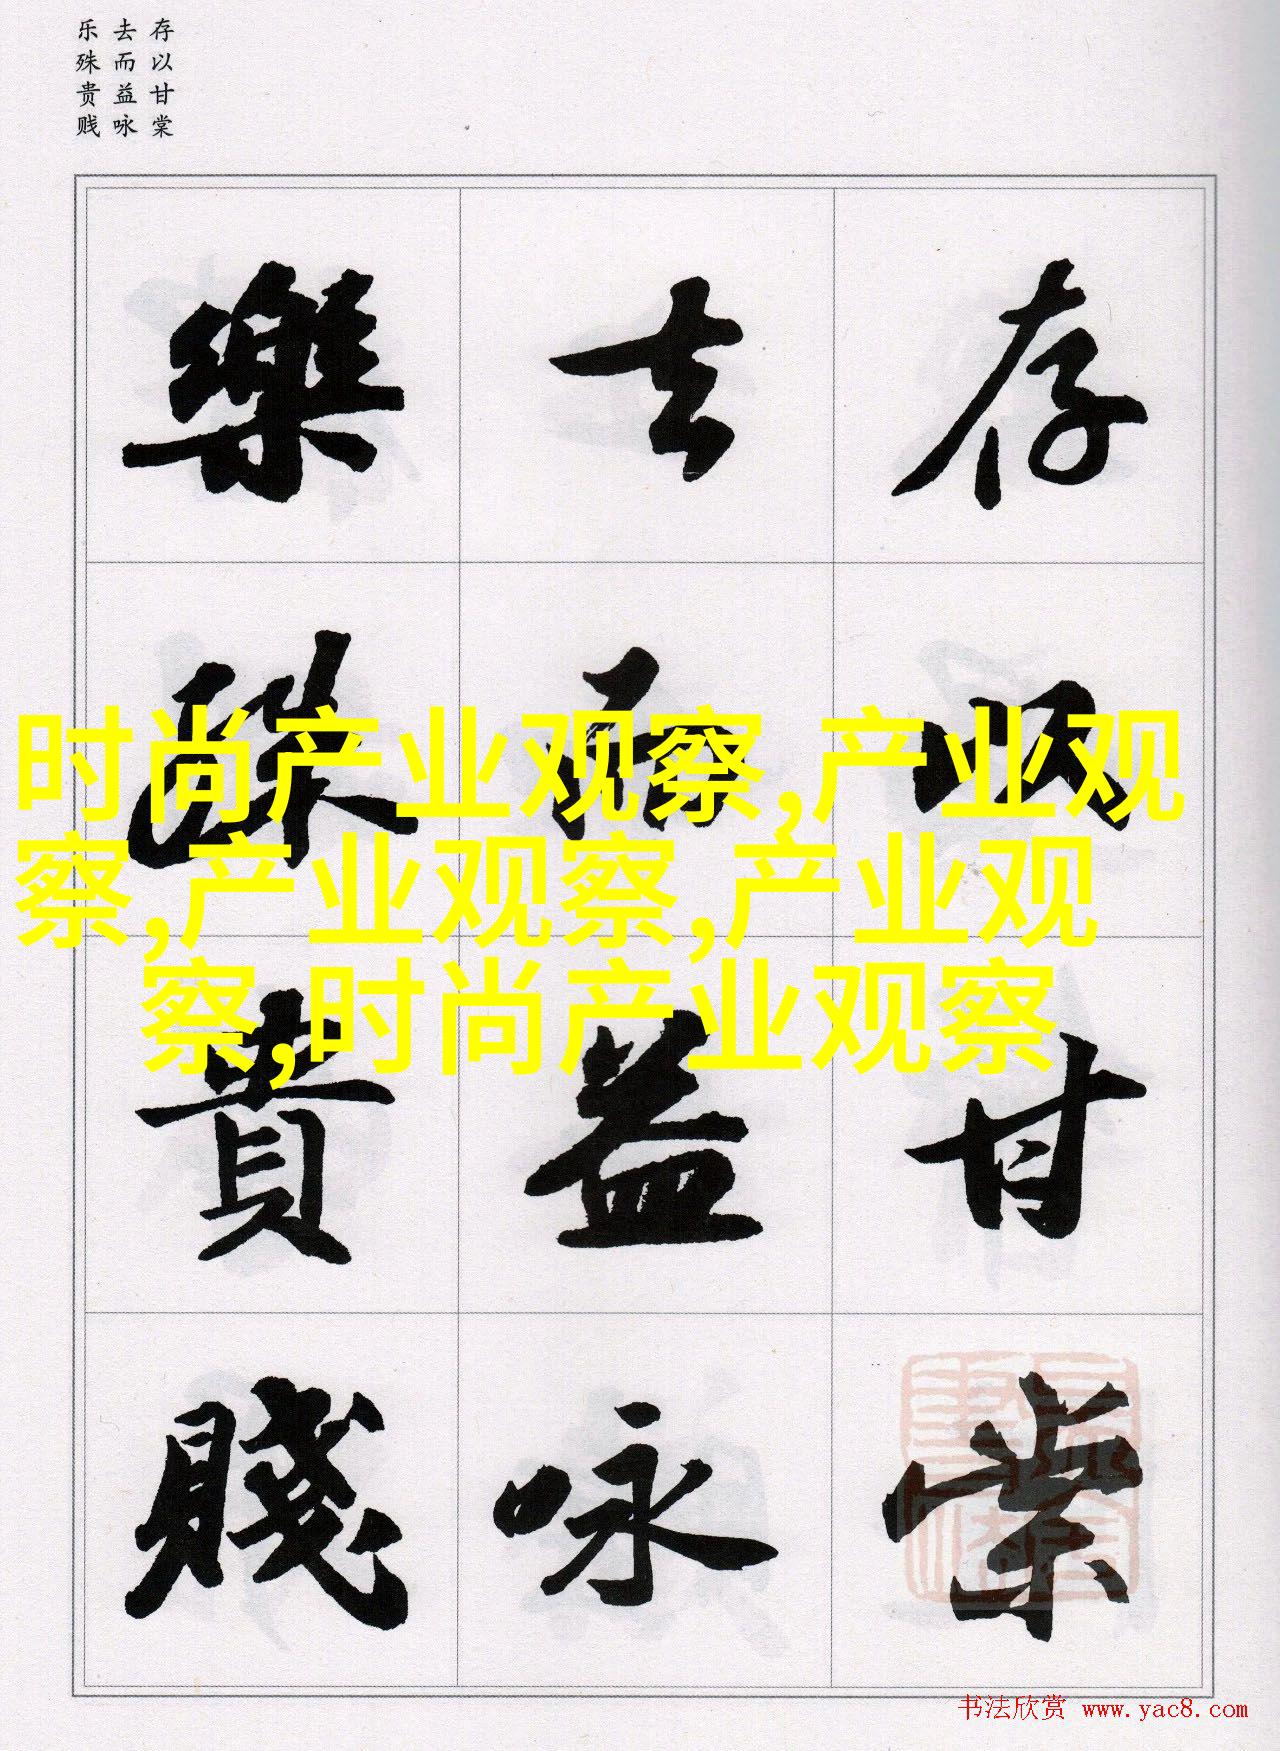 存以甘棠
去而益咏
乐殊贵贱
存以甘棠
去而益詠
樂殊貴賤
时尚产业观察,产业观
察,产业观察,产业观
察,时尚产业观察
书法欣赏 www.yac8.com